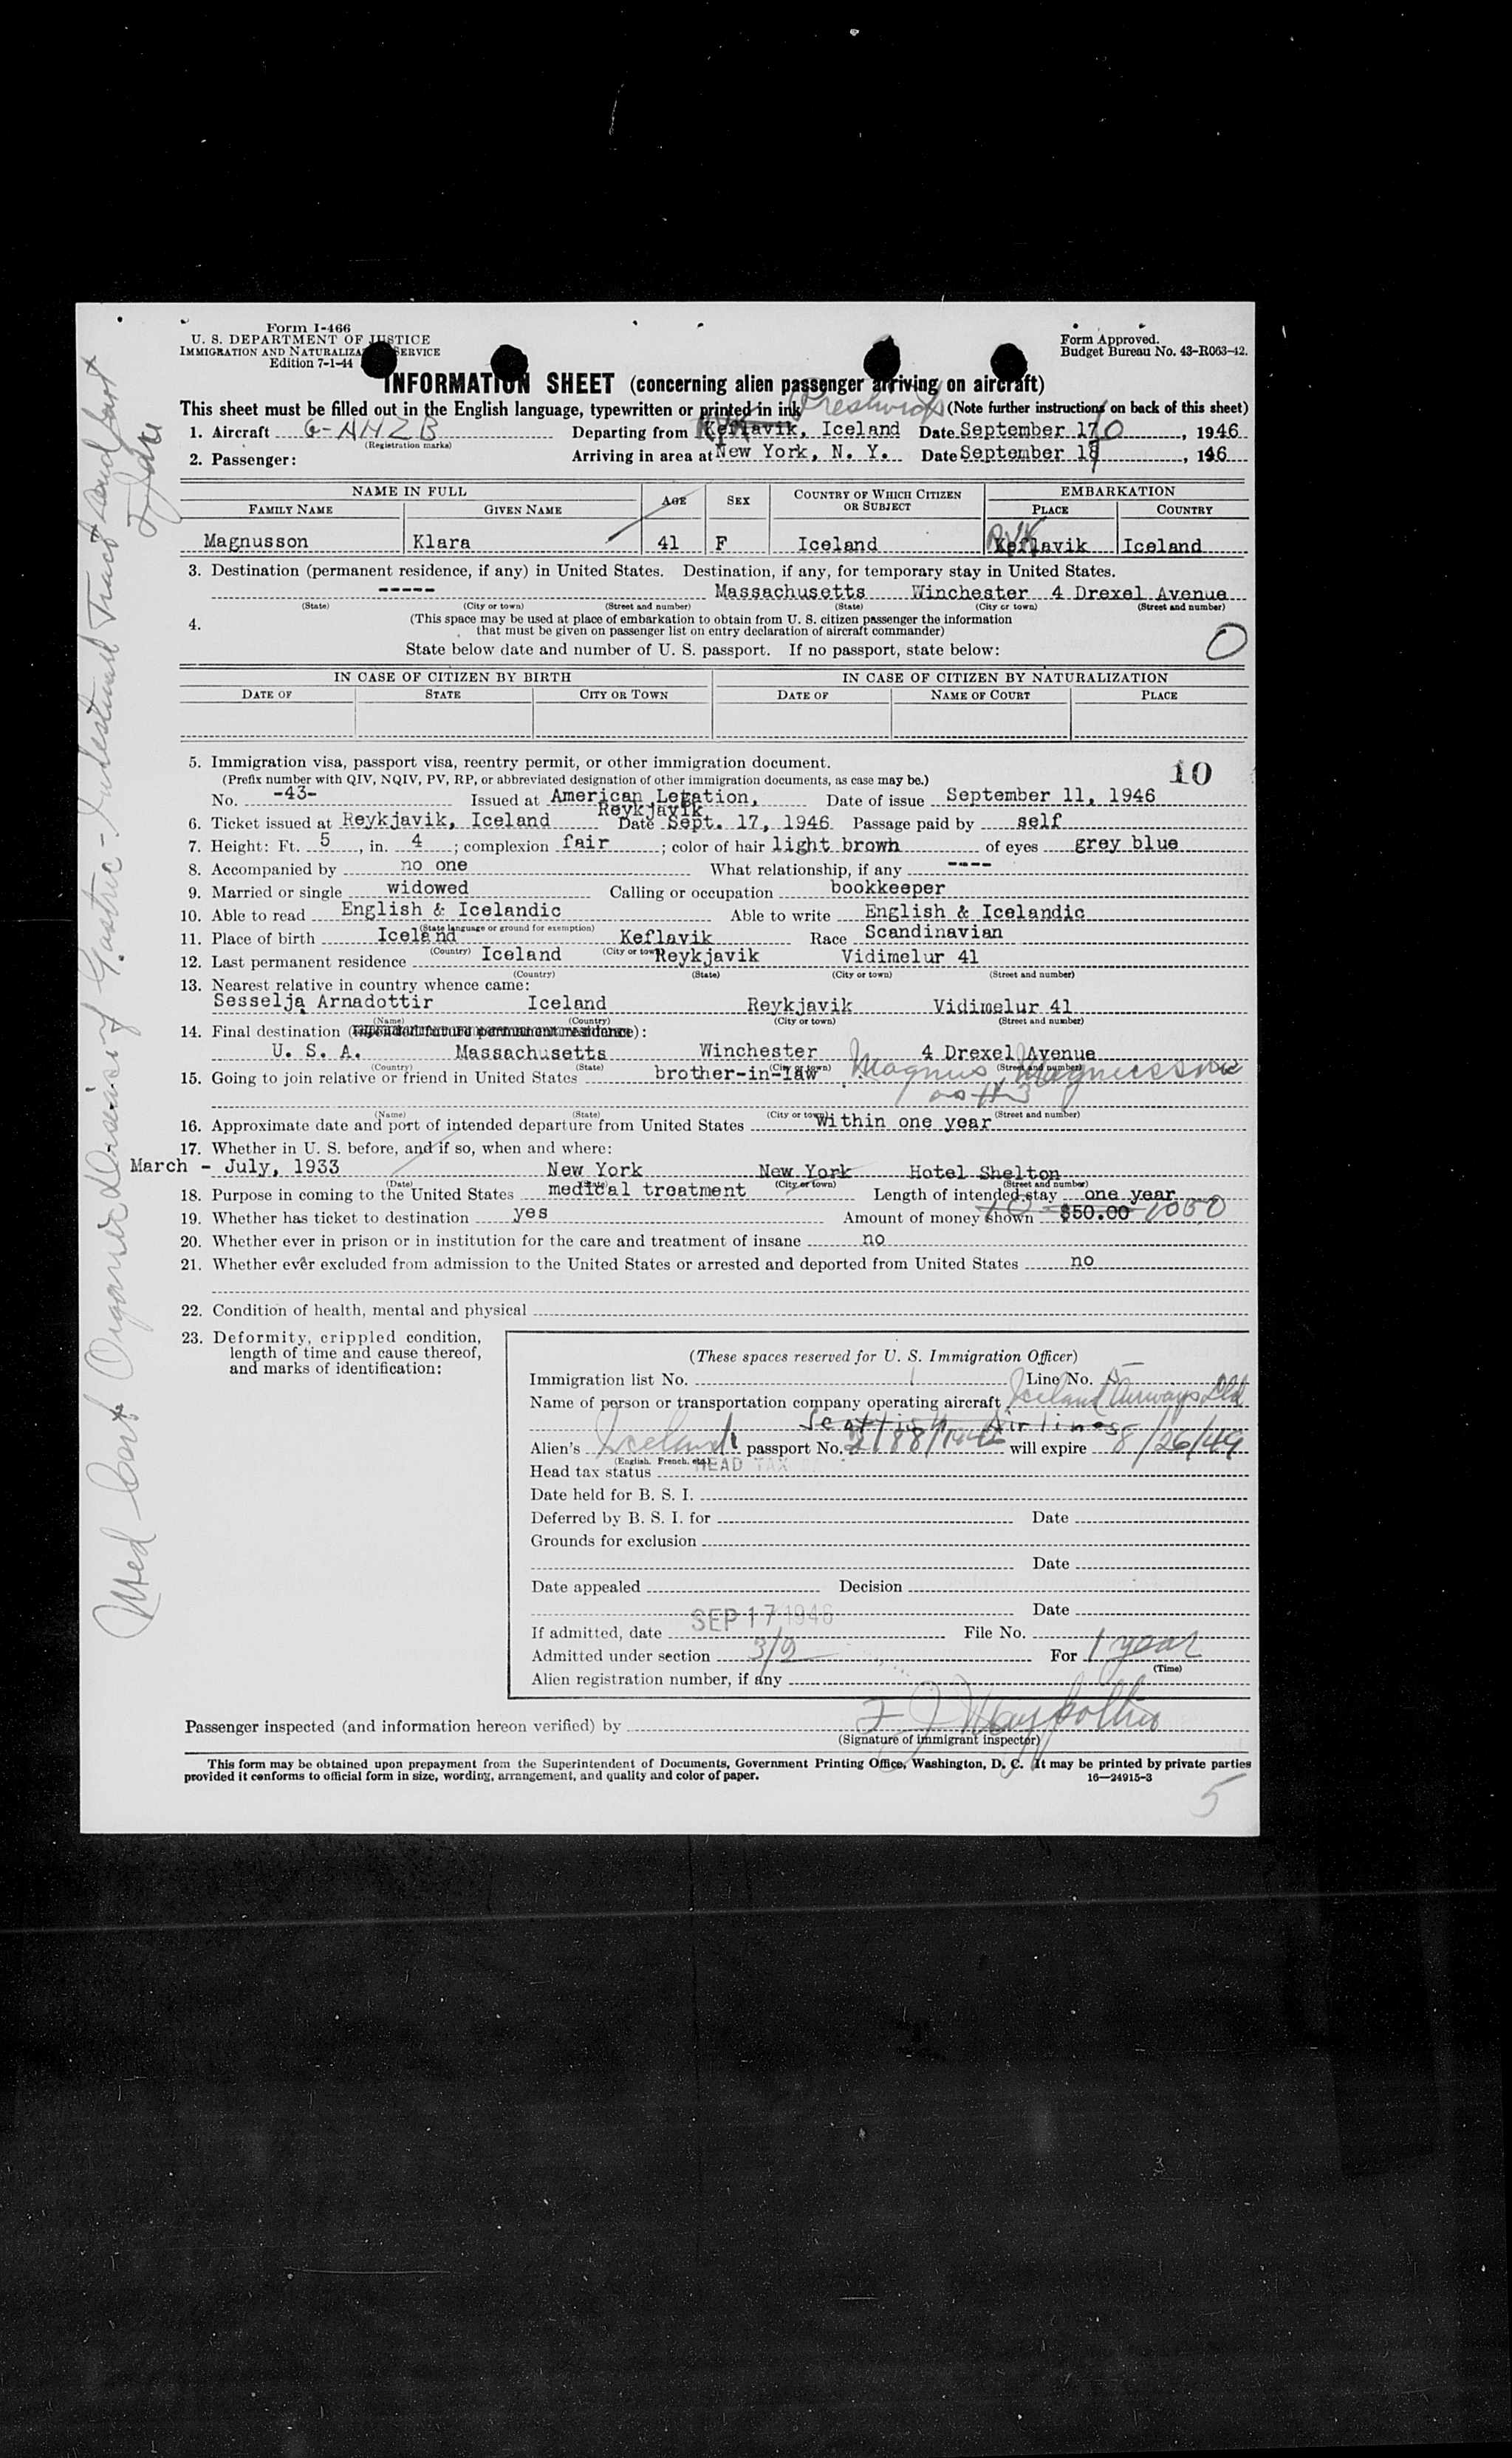 Form I-466
U. S. DEPARTMENT OF JUSTICE
IMMIGRATION AND NATURALIZATION SERVICE
Edition 7-1-44
Form Approved.
Budget Bureau No. 43-R063-42.
INFORMATION SHEET (concerning alien passenger arriving on aircraft)
This sheet must be filled out in the English language, typewritten or printed in ink (Note further instructions on back of this sheet)
Prestwick
1. Aircraft G-AHZB Departing from Keflavik, Iceland Date September 17, 1946
(Registration marks)
2. Passenger: Arriving in area at New York, N. Y. Date September 18, 146
NAME IN FULL AGE SEX COUNTRY OF WHICH CITIZEN OR SUBJECT EMBARKATION
FAMILY NAME GIVEN NAME PLACE COUNTRY
RVK
Magnusson Klara 41 F Iceland Keflavik Iceland
3. Destination (permanent residence, if any) in United States. Destination, if any, for temporary stay in United States.
----- Massachusetts Winchester 4 Drexel Avenue
(State) (City or town) (Street and number) (State) (City or town) (Street and number)
4. (This space may be used at place of embarkation to obtain from U. S. citizen passenger the information
that must be given on passenger list on entry declaration of aircraft commander)
0
State below date and number of U. S. passport. If no passport, state below:
IN CASE OF CITIZEN BY BIRTH IN CASE OF CITIZEN BY NATURALIZATION
DATE OF STATE CITY OR TOWN DATE OF NAME OF COURT PLACE
5. Immigration visa, passport visa, reentry permit, or other immigration document.
10
(Prefix number with QIV, NQIV, PV, RP, or abbreviated designation of other immigration documents, as case may be.)
No. -43- Issued at American Legation, Date of issue September 11, 1946
Reykjavik
6. Ticket issued at Reykjavik, Iceland Date Sept. 17, 1946 Passage paid by self
7. Height: Ft. 5, in. 4; complexion fair; color of hair light brown of eyes grey blue
8. Accompanied by no one What relationship, if any ----
9. Married or single widowed Calling or occupation bookkeeper
10. Able to read English & Icelandic Able to write English & Icelandic
(State language or ground for exemption)
11. Place of birth Iceland Keflavik Race Scandinavian
(Country) (City or town)
12. Last permanent residence Iceland Reykjavik Vidimelur 41
(Country) (State) (City or town) (Street and number)
13. Nearest relative in country whence came:
Sesselja Arnadottir Iceland Reykjavik Vidimelur 41
(Name) (Country) (City or town) (Street and number)
14. Final destination (Intended future permanent residence):
U. S. A. Massachusetts Winchester 4 Drexel Avenue
(Country) (State) (City or town) (Street and number)
15. Going to join relative or friend in United States brother-in-law Magnus Magnusson
as #3
(Name) (State) (City or town) (Street and number)
16. Approximate date and port of intended departure from United States Within one year
17. Whether in U. S. before, and if so, when and where:
March - July, 1933 New York New York Hotel Shelton
(Date) (State) (City or town) (Street and number)
18. Purpose in coming to the United States medical treatment Length of intended stay one year
19. Whether has ticket to destination yes Amount of money shown $50.00
20. Whether ever in prison or in institution for the care and treatment of insane no
21. Whether ever excluded from admission to the United States or arrested and deported from United States no
22. Condition of health, mental and physical
23. Deformity, crippled condition,
length of time and cause thereof,
and marks of identification:
(These spaces reserved for U. S. Immigration Officer)
Immigration list No. 1 Line No. 5
Name of person or transportation company operating aircraft Iceland Airways Ltd
Scottish Airlines
Alien's Iceland passport No. will expire 8/26/49
(English, French, etc.)
Head tax status HEAD TAX
Date held for B. S. I.
Deferred by B. S. I. for Date
Grounds for exclusion
Date
Date appealed Decision
Date
If admitted, date SEP 17 1946 File No.
Admitted under section 3/2 For 1 year
(Time)
Alien registration number, if any
Passenger inspected (and information hereon verified) by
(Signature of immigrant inspector)
This form may be obtained upon prepayment from the Superintendent of Documents, Government Printing Office, Washington, D. C. It may be printed by private parties
provided it conforms to official form in size, wording, arrangement, and quality and color of paper.
16—24915-3
5
Med Cert Organic Disease of Gastric-Intestinal Tract